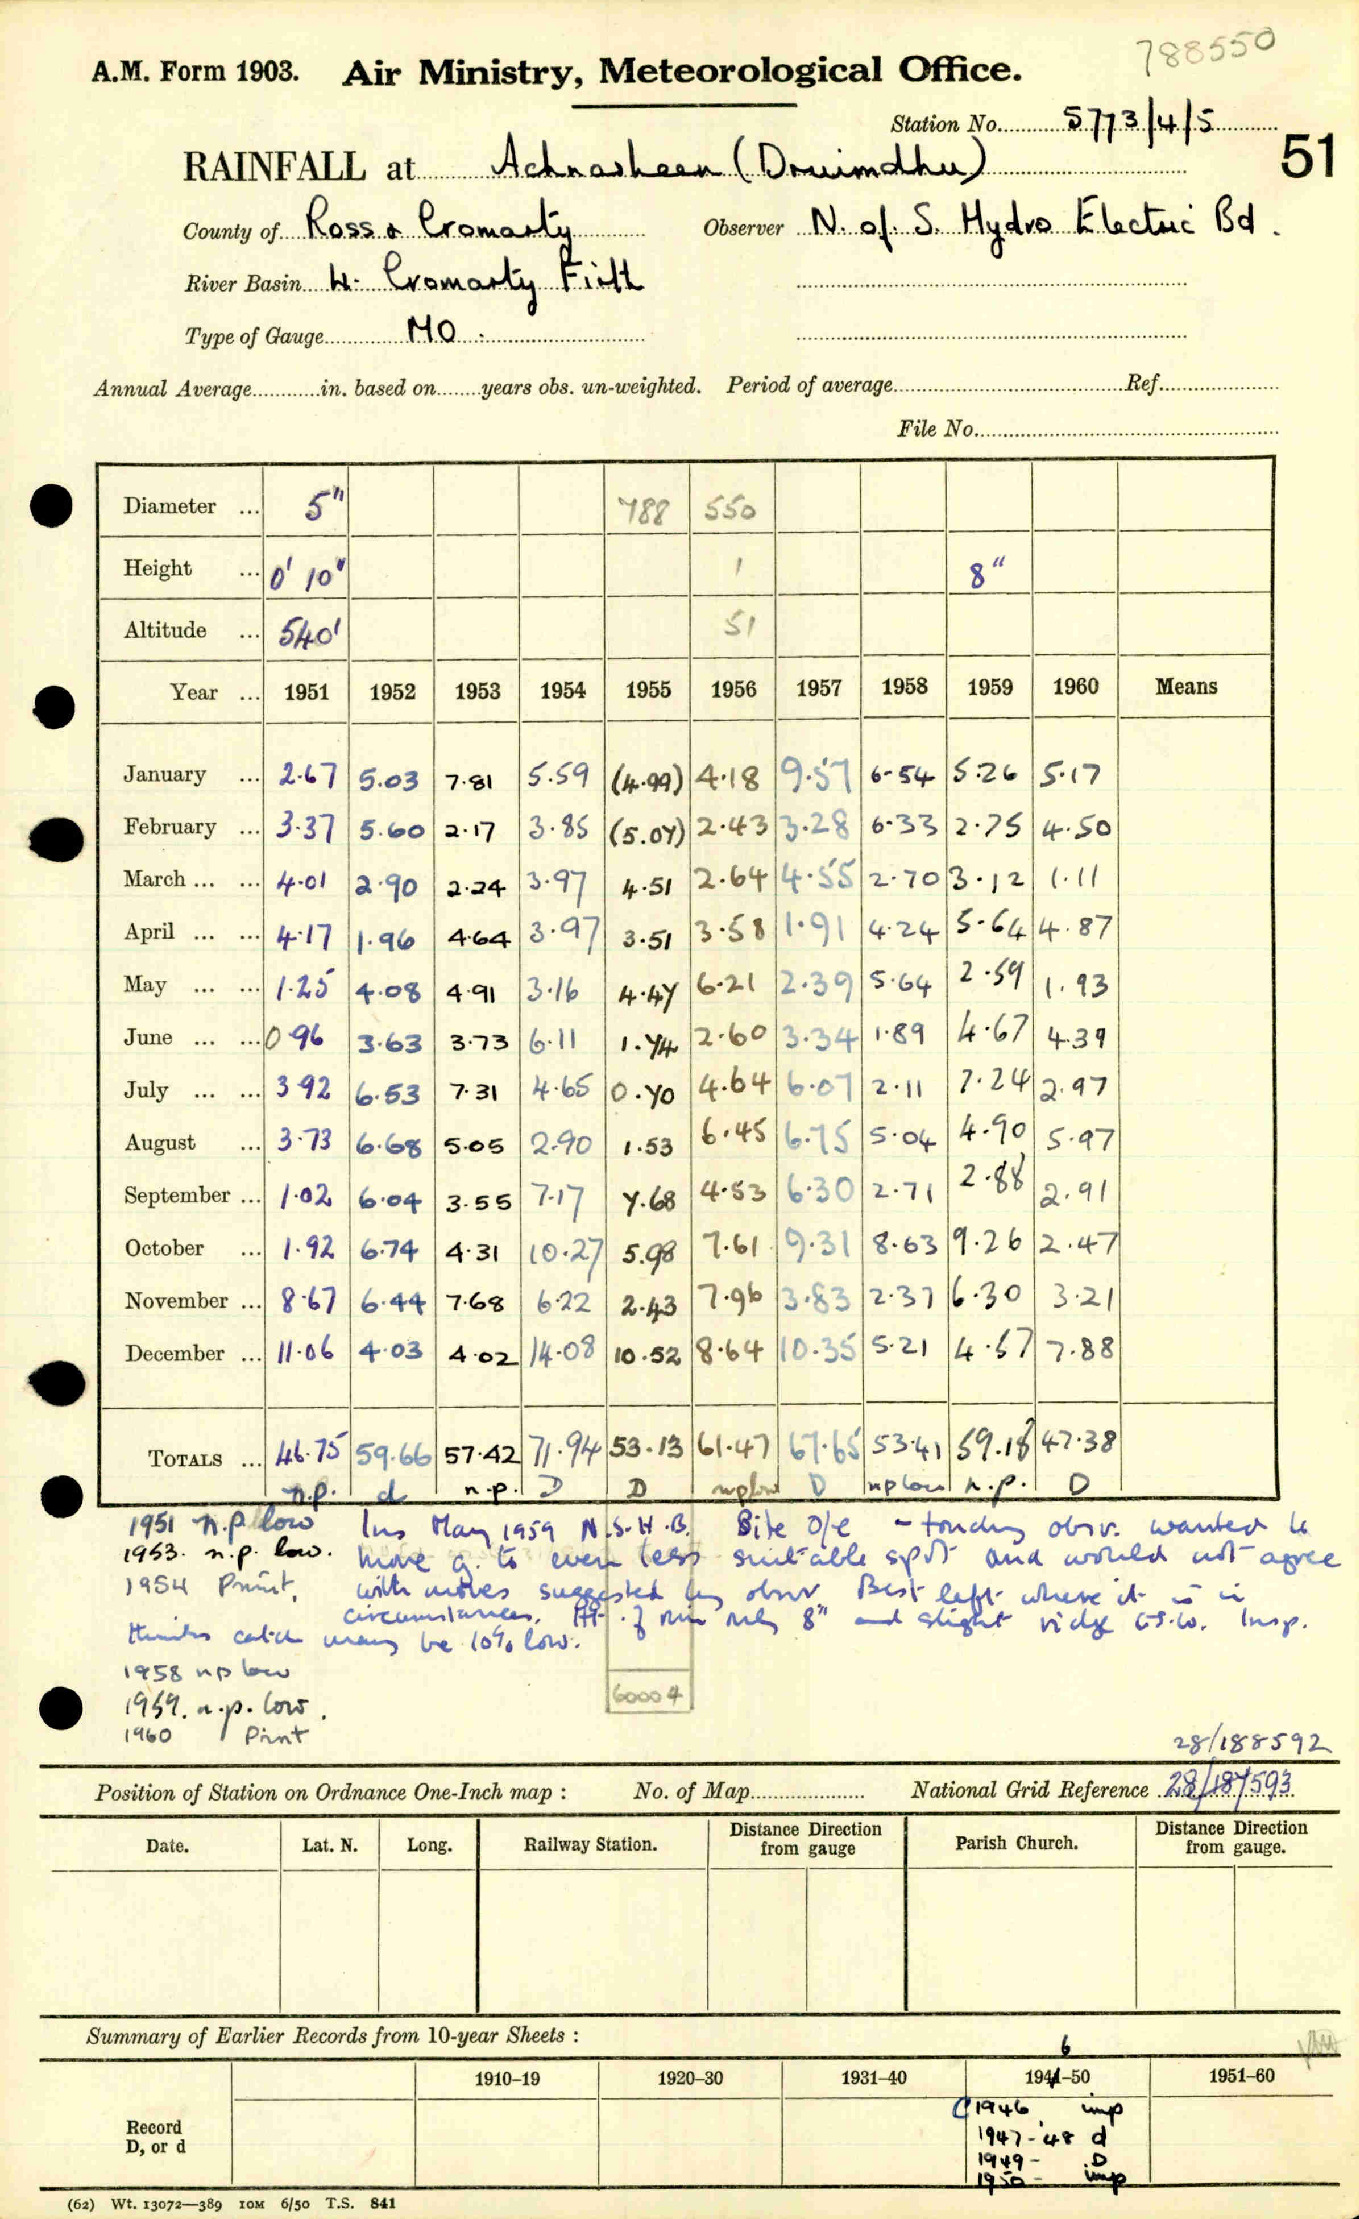 788550
A.M. Form 1903. Air Ministry, Meteorological Office.
Station No. 5773/4/5
51
RAINFALL at Achnasheen (Druimdhu)
County of Ross & Cromarty Observer N. of S. Hydro Electric Bd.
River Basin H. Cromarty Firth
Type of Gauge MO.
Annual Average in. based on years obs. un-weighted. Period of average Ref.
File No.
Diameter ... 5" 788 550
Height ... 0' 10" 1 8"
Altitude ... 540' 51
Year ... 1951 1952 1953 1954 1955 1956 1957 1958 1959 1960 Means
January ... 2.67 5.03 7.81 5.59 (4.99) 4.18 9.57 6.54 5.26 5.17
February ... 3.37 5.60 2.17 3.85 (5.07) 2.43 3.28 6.33 2.75 4.50
March ... ... 4.01 2.90 2.24 3.97 4.51 2.64 4.55 2.70 3.12 1.11
April ... ... 4.17 1.96 4.64 3.97 3.51 3.58 1.91 4.24 5.64 4.87
May ... ... 1.25 4.08 4.91 3.16 4.47 6.21 2.39 5.64 2.59 1.93
June ... ... 0.96 3.63 3.73 6.11 1.74 2.60 3.34 1.89 4.67 4.39
July ... ... 3.92 6.53 7.31 4.65 0.70 4.64 6.07 2.11 7.24 2.97
August ... 3.73 6.68 5.05 2.90 1.53 6.45 6.75 5.04 4.90 5.97
September ... 1.02 6.04 3.55 7.17 7.68 4.53 6.30 2.71 2.88 2.91
October ... 1.92 6.74 4.31 10.27 5.98 7.61 9.31 8.63 9.26 2.47
November ... 8.67 6.44 7.68 6.22 2.43 7.96 3.83 2.37 6.30 3.21
December ... 11.06 4.03 4.02 14.08 10.52 8.64 10.35 5.21 4.57 7.88
TOTALS ... 46.75 59.66 57.42 71.94 53.13 61.47 67.65 53.41 59.18 47.38
n.p. d n.p. D D np low D np low n.p. D
1951 n.p. low Ins May 1959 N.S.H.B. Site o/e - touchy obsr. wanted to
1953. n.p. low. move g. to even less suitable spot and would not agree
1954 Print. with moves suggested by obsr. Best left where it is in
circumstances. Ht. of rim only 8" and slight ridge Insp.
thinks catch may be 10% low.
1958 np low
1959. n.p. low. 60004
1960 Print
28/188592
Position of Station on Ordnance One-Inch map : No. of Map National Grid Reference 28/187593
Date. Lat. N. Long. Railway Station. Distance Direction from gauge Parish Church. Distance Direction from gauge.
Summary of Earlier Records from 10-year Sheets :
6
1910–19 1920–30 1931–40 1941–50 1951–60
Record
D, or d
1946 imp
1947-'48 d
1949- D
1950- imp
(62) Wt. 13072—389 10M 6/50 T.S. 841